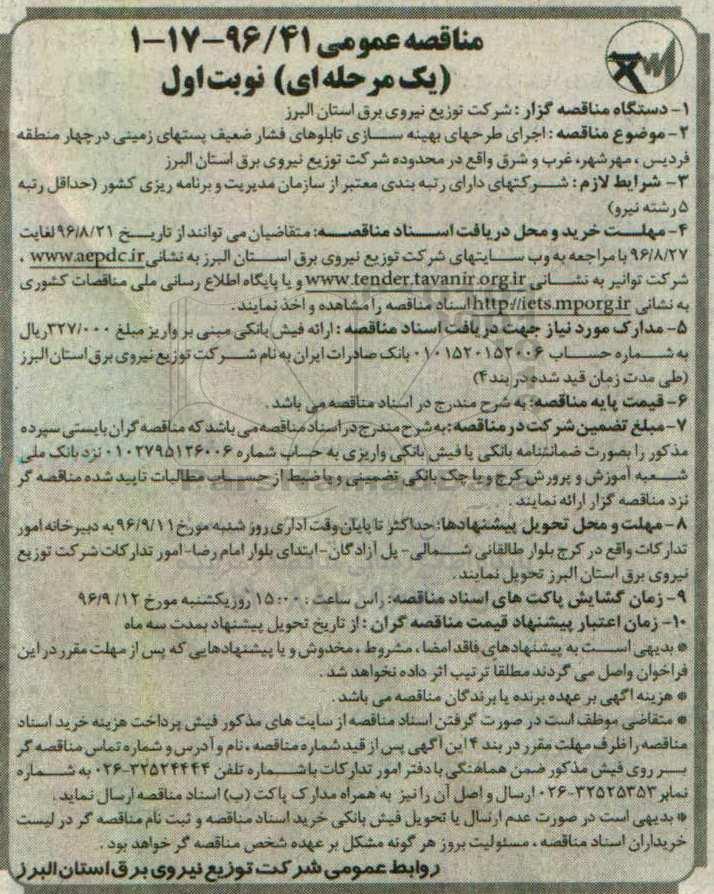 مناقصه عمومی ۹۶/۴۱-۱۷-۱
(یک مرحله ای) نوبت اول
۱- دستگاه مناقصه گزار : شرکت توزیع نیروی برق استان البرز
۲- موضوع مناقصه : اجرای طرحهای بهینه سازی تابلوهای فشار ضعیف پستهای زمینی در چهار منطقه
فردیس ، مهرشهر، غرب و شرق واقع در محدوده شرکت توزیع نیروی برق استان البرز
۳- شرایط لازم : شرکتهای دارای رتبه بندی معتبر از سازمان مدیریت و برنامه ریزی کشور (حداقل رتبه
۵ رشته نیرو)
۴- مهلت خرید و محل دریافت اسناد مناقصه: متقاضیان می توانند از تاریخ ۹۶/۸/۲۱ لغایت
۹۶/۸/۲۷ با مراجعه به وب سایتهای شرکت توزیع نیروی برق استان البرز به نشانی www.aepdc.ir ،
شرکت توانیر به نشانی www.tender.tavanir.org.ir و یا پایگاه اطلاع رسانی ملی مناقصات کشوری
به نشانی http://iets.mporg.ir اسناد مناقصه را مشاهده و اخذ نمایند .
۵- مدارک مورد نیاز جهت دریافت اسناد مناقصه : ارائه فیش بانکی مبنی بر واریز مبلغ ۳۲۷/۰۰۰ ریال
به شماره حساب ۰۱۰۱۵۲۰۱۵۲۰۰۶ بانک صادرات ایران به نام شرکت توزیع نیروی برق استان البرز
(طی مدت زمان قید شده در بند ۴)
۶- قیمت پایه مناقصه: به شرح مندرج در اسناد مناقصه می باشد .
۷- مبلغ تضمین شرکت در مناقصه: به شرح مندرج در اسناد مناقصه می باشد که مناقصه گران بایستی سپرده
مذکور را بصورت ضمانتنامه بانکی یا فیش بانکی واریزی به حساب شماره ۰۱۰۲۷۹۵۱۲۶۰۰۶ نزد بانک ملی
شعبه آموزش و پرورش کرج و یا چک بانکی تضمینی و یا ضبط از حساب مطالبات تایید شده مناقصه گر
نزد مناقصه گزار ارائه نمایند .
۸- مهلت و محل تحویل پیشنهادها: حداکثر تا پایان وقت اداری روز شنبه مورخ ۹۶/۹/۱۱ به دبیرخانه امور
تدارکات واقع در کرج بلوار طالقانی شمالی- پل آزادگان- ابتدای بلوار امام رضا- امور تدارکات شرکت توزیع
نیروی برق استان البرز تحویل نمایند .
۹- زمان گشایش پاکت های اسناد مناقصه: راس ساعت : ۱۵:۰۰ روز یکشنبه مورخ ۹۶/۹/۱۲
۱۰- زمان اعتبار پیشنهاد قیمت مناقصه گران : از تاریخ تحویل پیشنهاد بمدت سه ماه
* بدیهی است به پیشنهادهای فاقد امضا ، مشروط ، مخدوش و یا پیشنهادهایی که پس از مهلت مقرر در این
فراخوان واصل می گردند مطلقا ترتیب اثر داده نخواهد شد .
* هزینه آگهی بر عهده برنده یا برندگان مناقصه می باشد .
* متقاضی موظف است در صورت گرفتن اسناد مناقصه از سایت های مذکور فیش پرداخت هزینه خرید اسناد
مناقصه را ظرف مهلت مقرر در بند ۴ این آگهی پس از قید شماره مناقصه ، نام و آدرس و شماره تماس مناقصه گر
بر روی فیش مذکور ضمن هماهنگی با دفتر امور تدارکات با شماره تلفن ۳۲۵۲۴۴۴۴-۰۲۶ به شماره
نمابر ۳۲۵۲۵۳۵۳-۰۲۶ ارسال و اصل آن را نیز به همراه مدارک پاکت (ب) اسناد مناقصه ارسال نماید .
* بدیهی است در صورت عدم ارسال یا تحویل فیش بانکی خرید اسناد مناقصه و ثبت نام مناقصه گر در لیست
خریداران اسناد مناقصه ، مسئولیت بروز هر گونه مشکل بر عهده شخص مناقصه گر خواهد بود .
روابط عمومی شرکت توزیع نیروی برق استان البرز